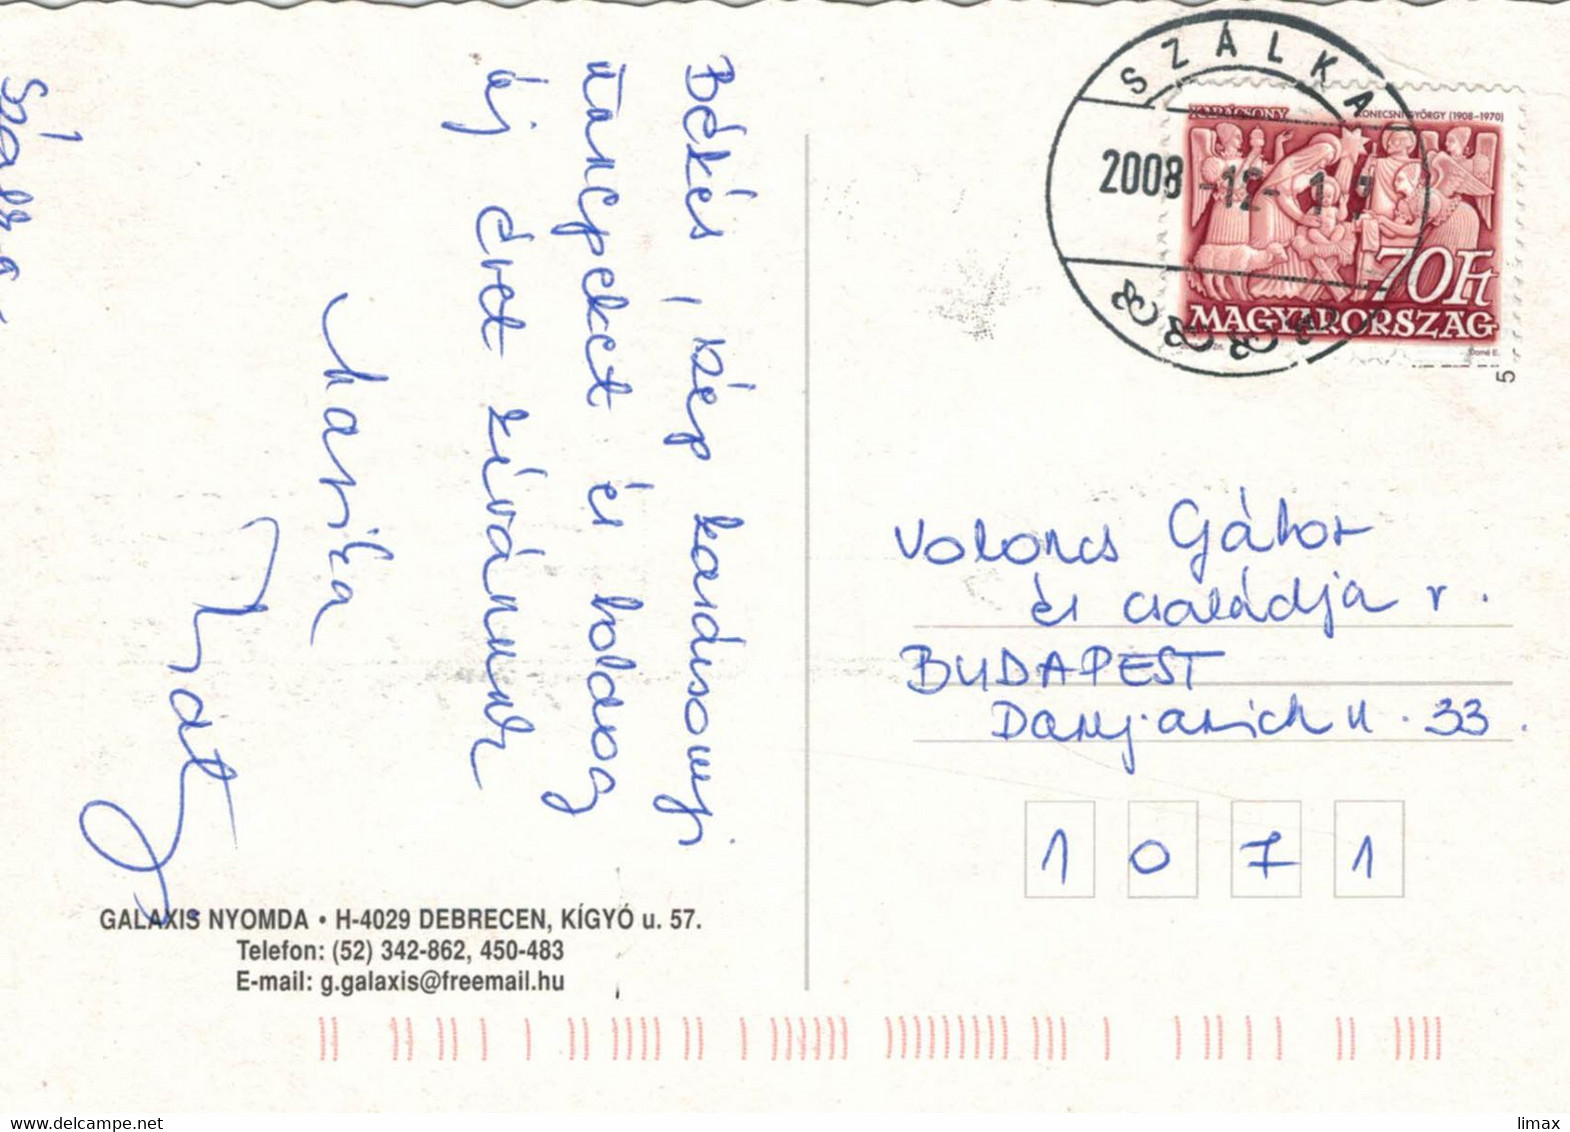 Békés, szép karácsonyi
ünnepeket és boldog
új évet kívánunk
Marika
Szálka
SZÁLKA
2008-12-1
KARÁCSONY
KONECSNI GYÖRGY (1908-1970)
70Ft
MAGYARORSZÁG
Domé E.
5
Voloncs Gábor
és családja r.
BUDAPEST
Damjanich u. 33.
1 0 7 1
GALAXIS NYOMDA • H-4029 DEBRECEN, KÍGYÓ u. 57.
Telefon: (52) 342-862, 450-483
E-mail: g.galaxis@freemail.hu
www.delcampe.net
limax